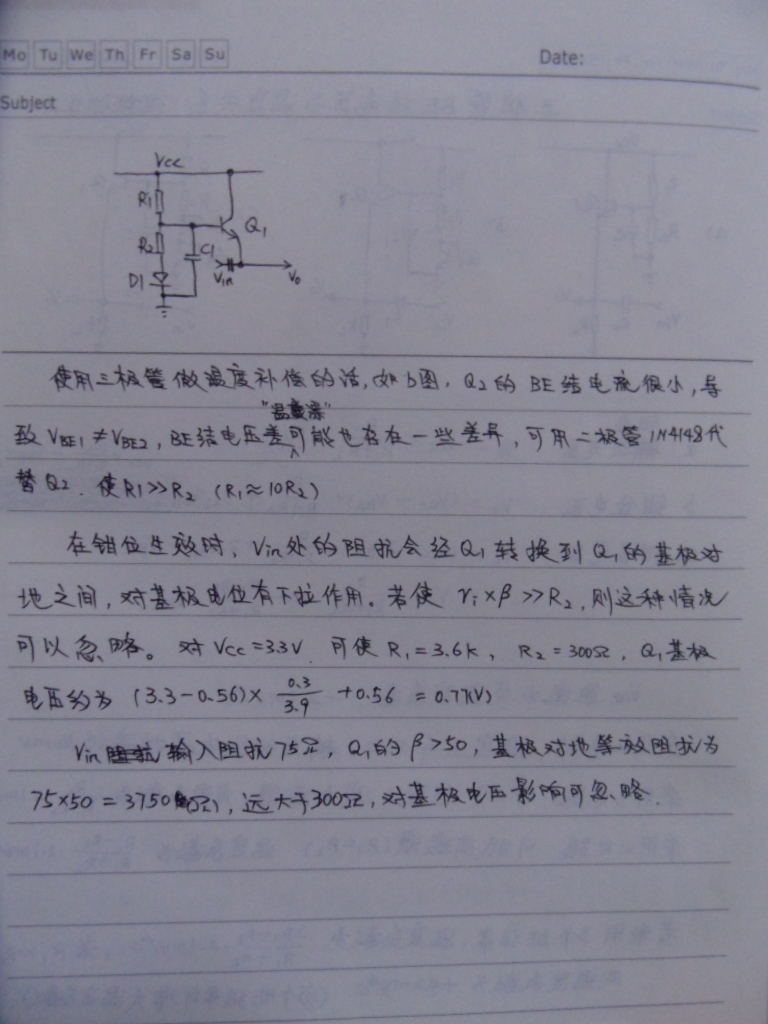 Mo Tu We Th Fr Sa Su
Date:
Subject
Vcc
R1
Q1
R2
C1
D1
Vin
Vo
使用三极管做温度补偿的话,如b图,Q2的BE结电流很小,导
"温度漂"
致VBE1≠VBE2,BE结电压差可能也存在一些差异,可用二极管1N4148代
替Q2.使R1>>R2 (R1≈10R2)
在钳位生效时,Vin处的阻抗会经Q1转换到Q1的基极对
地之间,对基极电位有下拉作用。若使 ri×β>>R2,则这种情况
可以忽略。对Vcc=3.3V 可使R1=3.6k, R2=300Ω,Q1基极
电压约为 (3.3-0.56)× 0.3/3.9 +0.56 = 0.77(V)
Vin输入阻抗75Ω,Q1的β>50,基极对地等效阻抗为
75×50=3750(Ω),远大于300Ω,对基极电压影响可忽略.